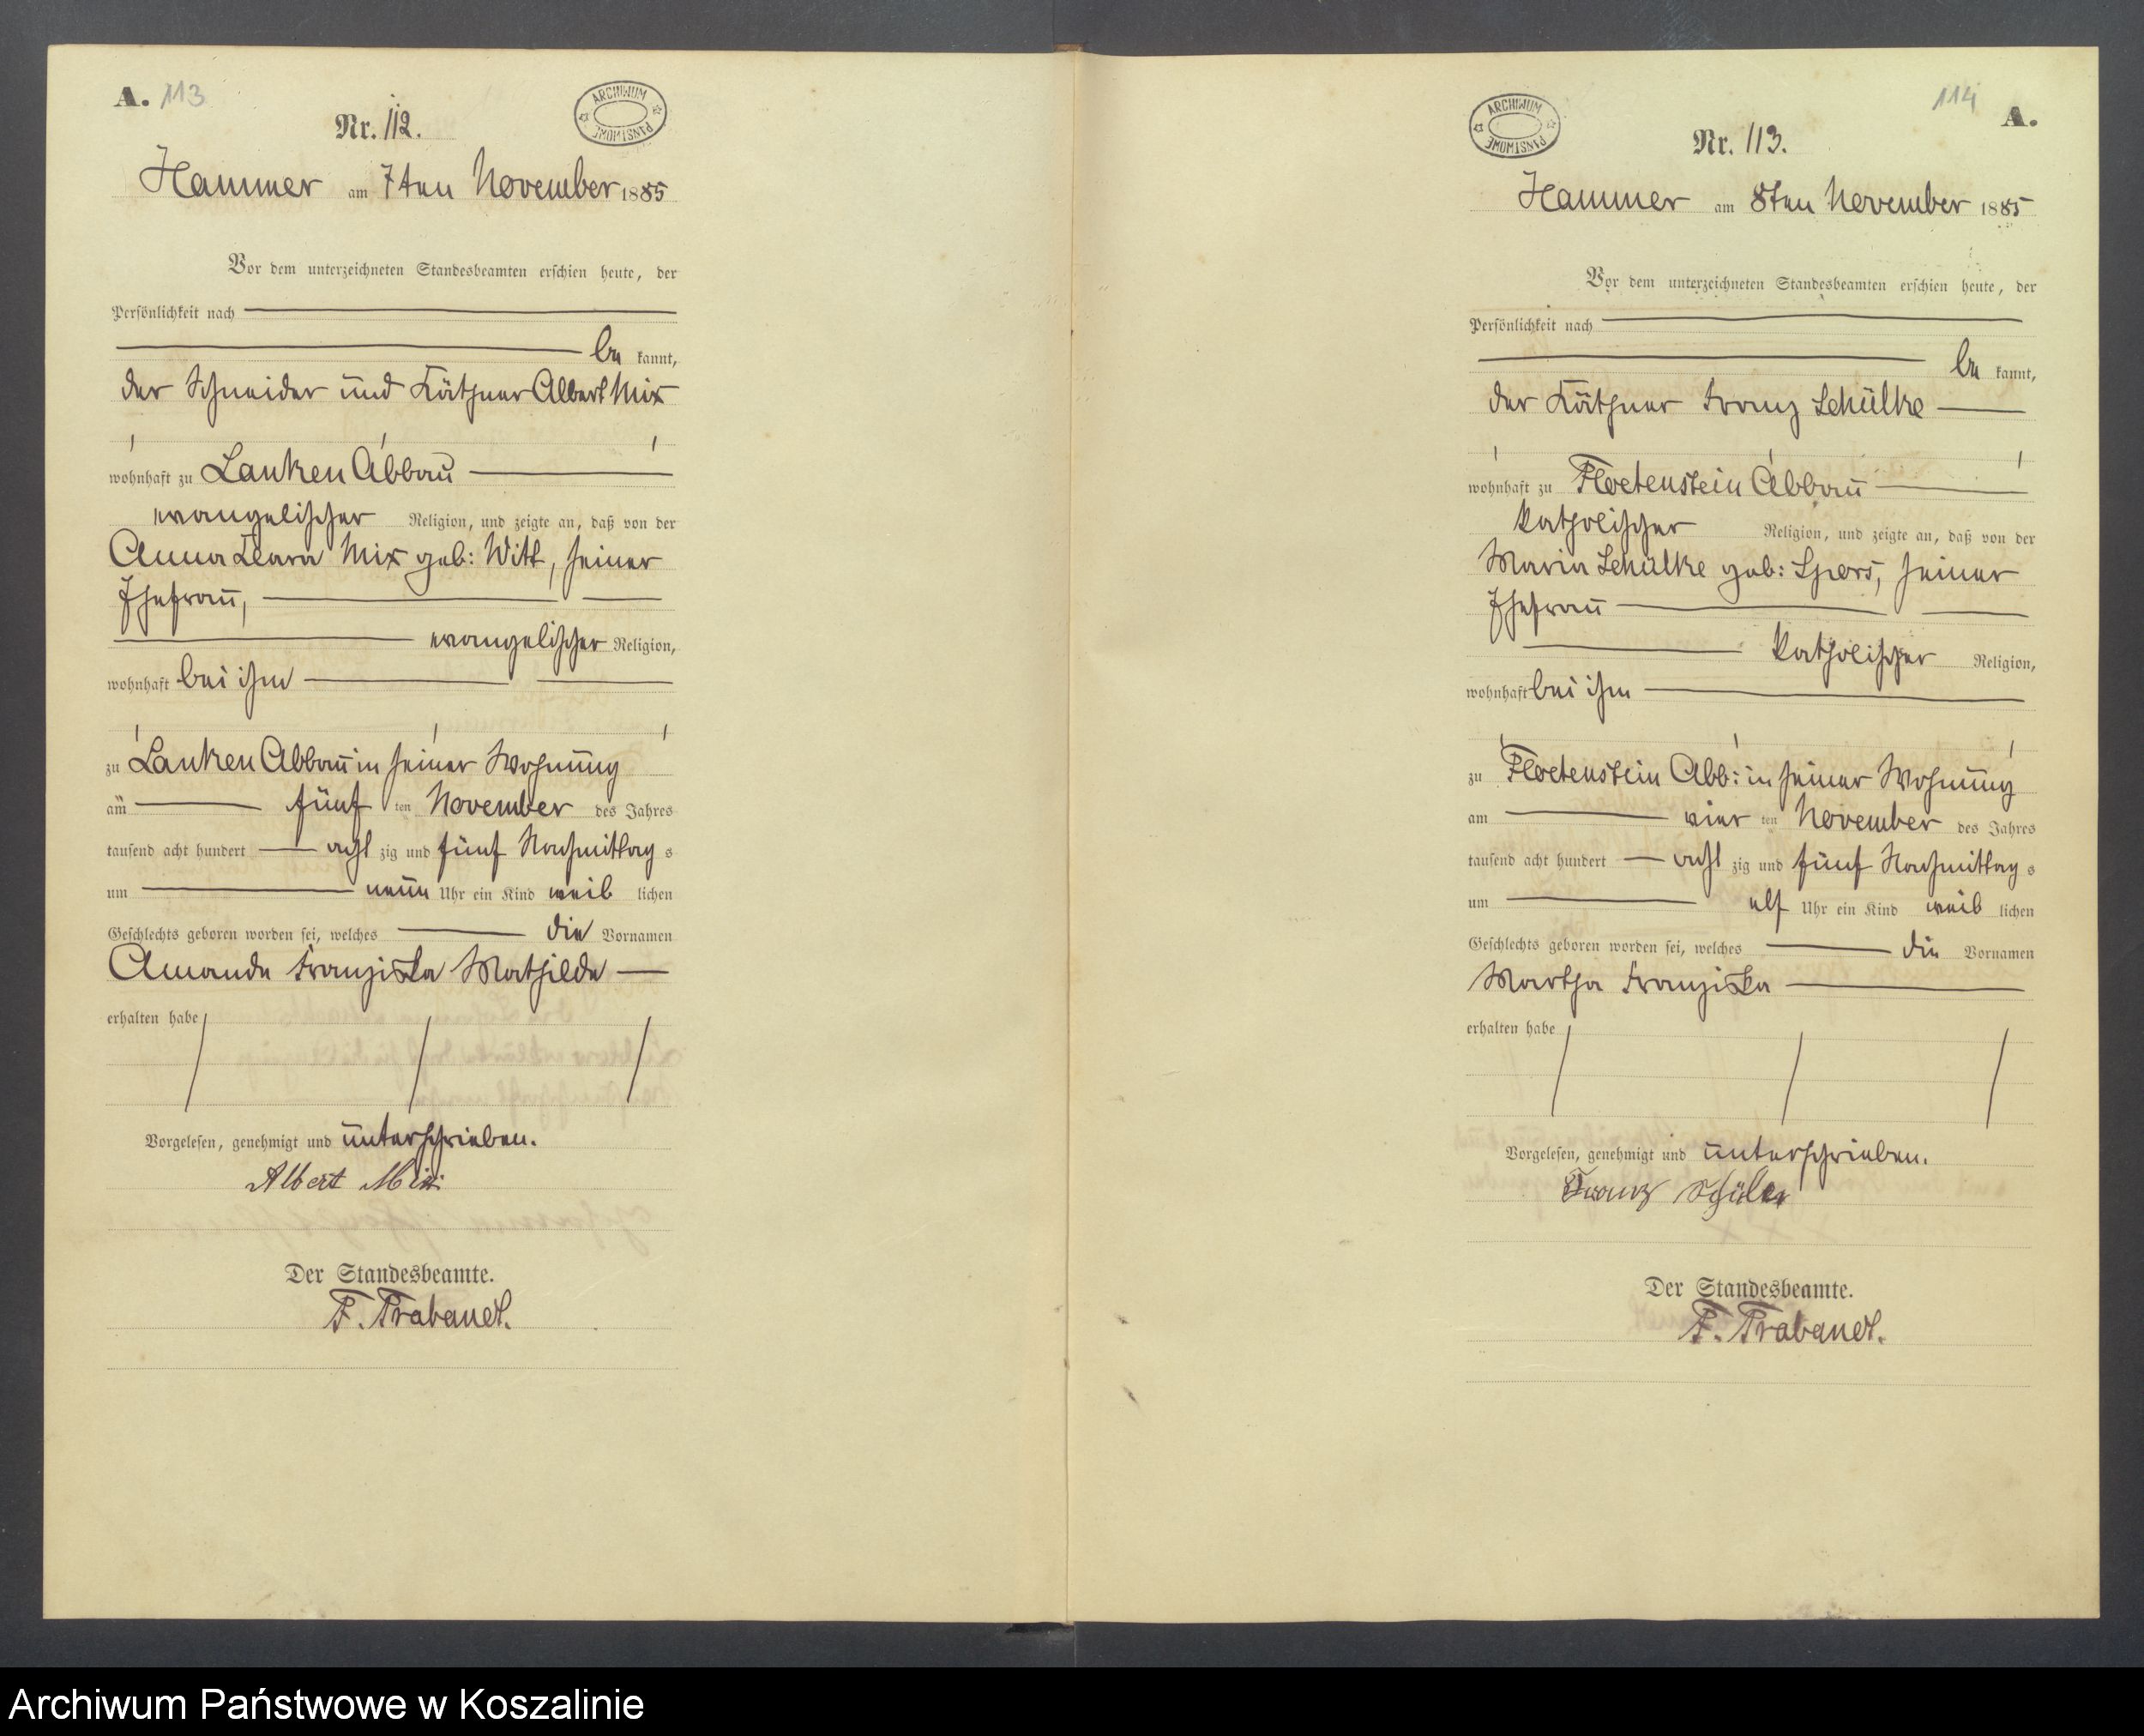 A. 113
ARCHIWUM PAŃSTWOWE
Nr. 112.
Hammer am 7ten November 1885
Vor dem unterzeichneten Standesbeamten erschien heute, der
Persönlichkeit nach
be kannt,
der Schneider und Käthner Albert Mix
wohnhaft zu Lanken Abbau
evangelischer Religion, und zeigte an, daß von der
Anna Clara Mix geb: Witt, seiner
Ehefrau,
evangelischer Religion,
wohnhaft bei ihm
zu Lanken Abbau in seiner Wohnung
am fünf ten November des Jahres
tausend acht hundert acht zig und fünf Nachmittag s
um neun Uhr ein Kind weib lichen
Geschlechts geboren worden sei, welches die Vornamen
Amanda Franziska Mathilde
erhalten habe
Vorgelesen, genehmigt und unterschrieben.
Albert Mix
Der Standesbeamte.
F. Trabandt.
114 A.
ARCHIWUM PAŃSTWOWE
Nr. 113.
Hammer am 8ten November 1885
Vor dem unterzeichneten Standesbeamten erschien heute, der
Persönlichkeit nach
be kannt,
der Käthner Franz Schülke
wohnhaft zu Floetenstein Abbau
katholischer Religion, und zeigte an, daß von der
Maria Schülke geb: Spors, seiner
Ehefrau
katholischer Religion,
wohnhaft bei ihm
zu Floetenstein Abb: in seiner Wohnung
am vier ten November des Jahres
tausend acht hundert acht zig und fünf Nachmittag s
um elf Uhr ein Kind weib lichen
Geschlechts geboren worden sei, welches die Vornamen
Martha Franziska
erhalten habe
Vorgelesen, genehmigt und unterschrieben.
Franz
Der Standesbeamte.
F. Trabandt.
Archiwum Państwowe w Koszalinie